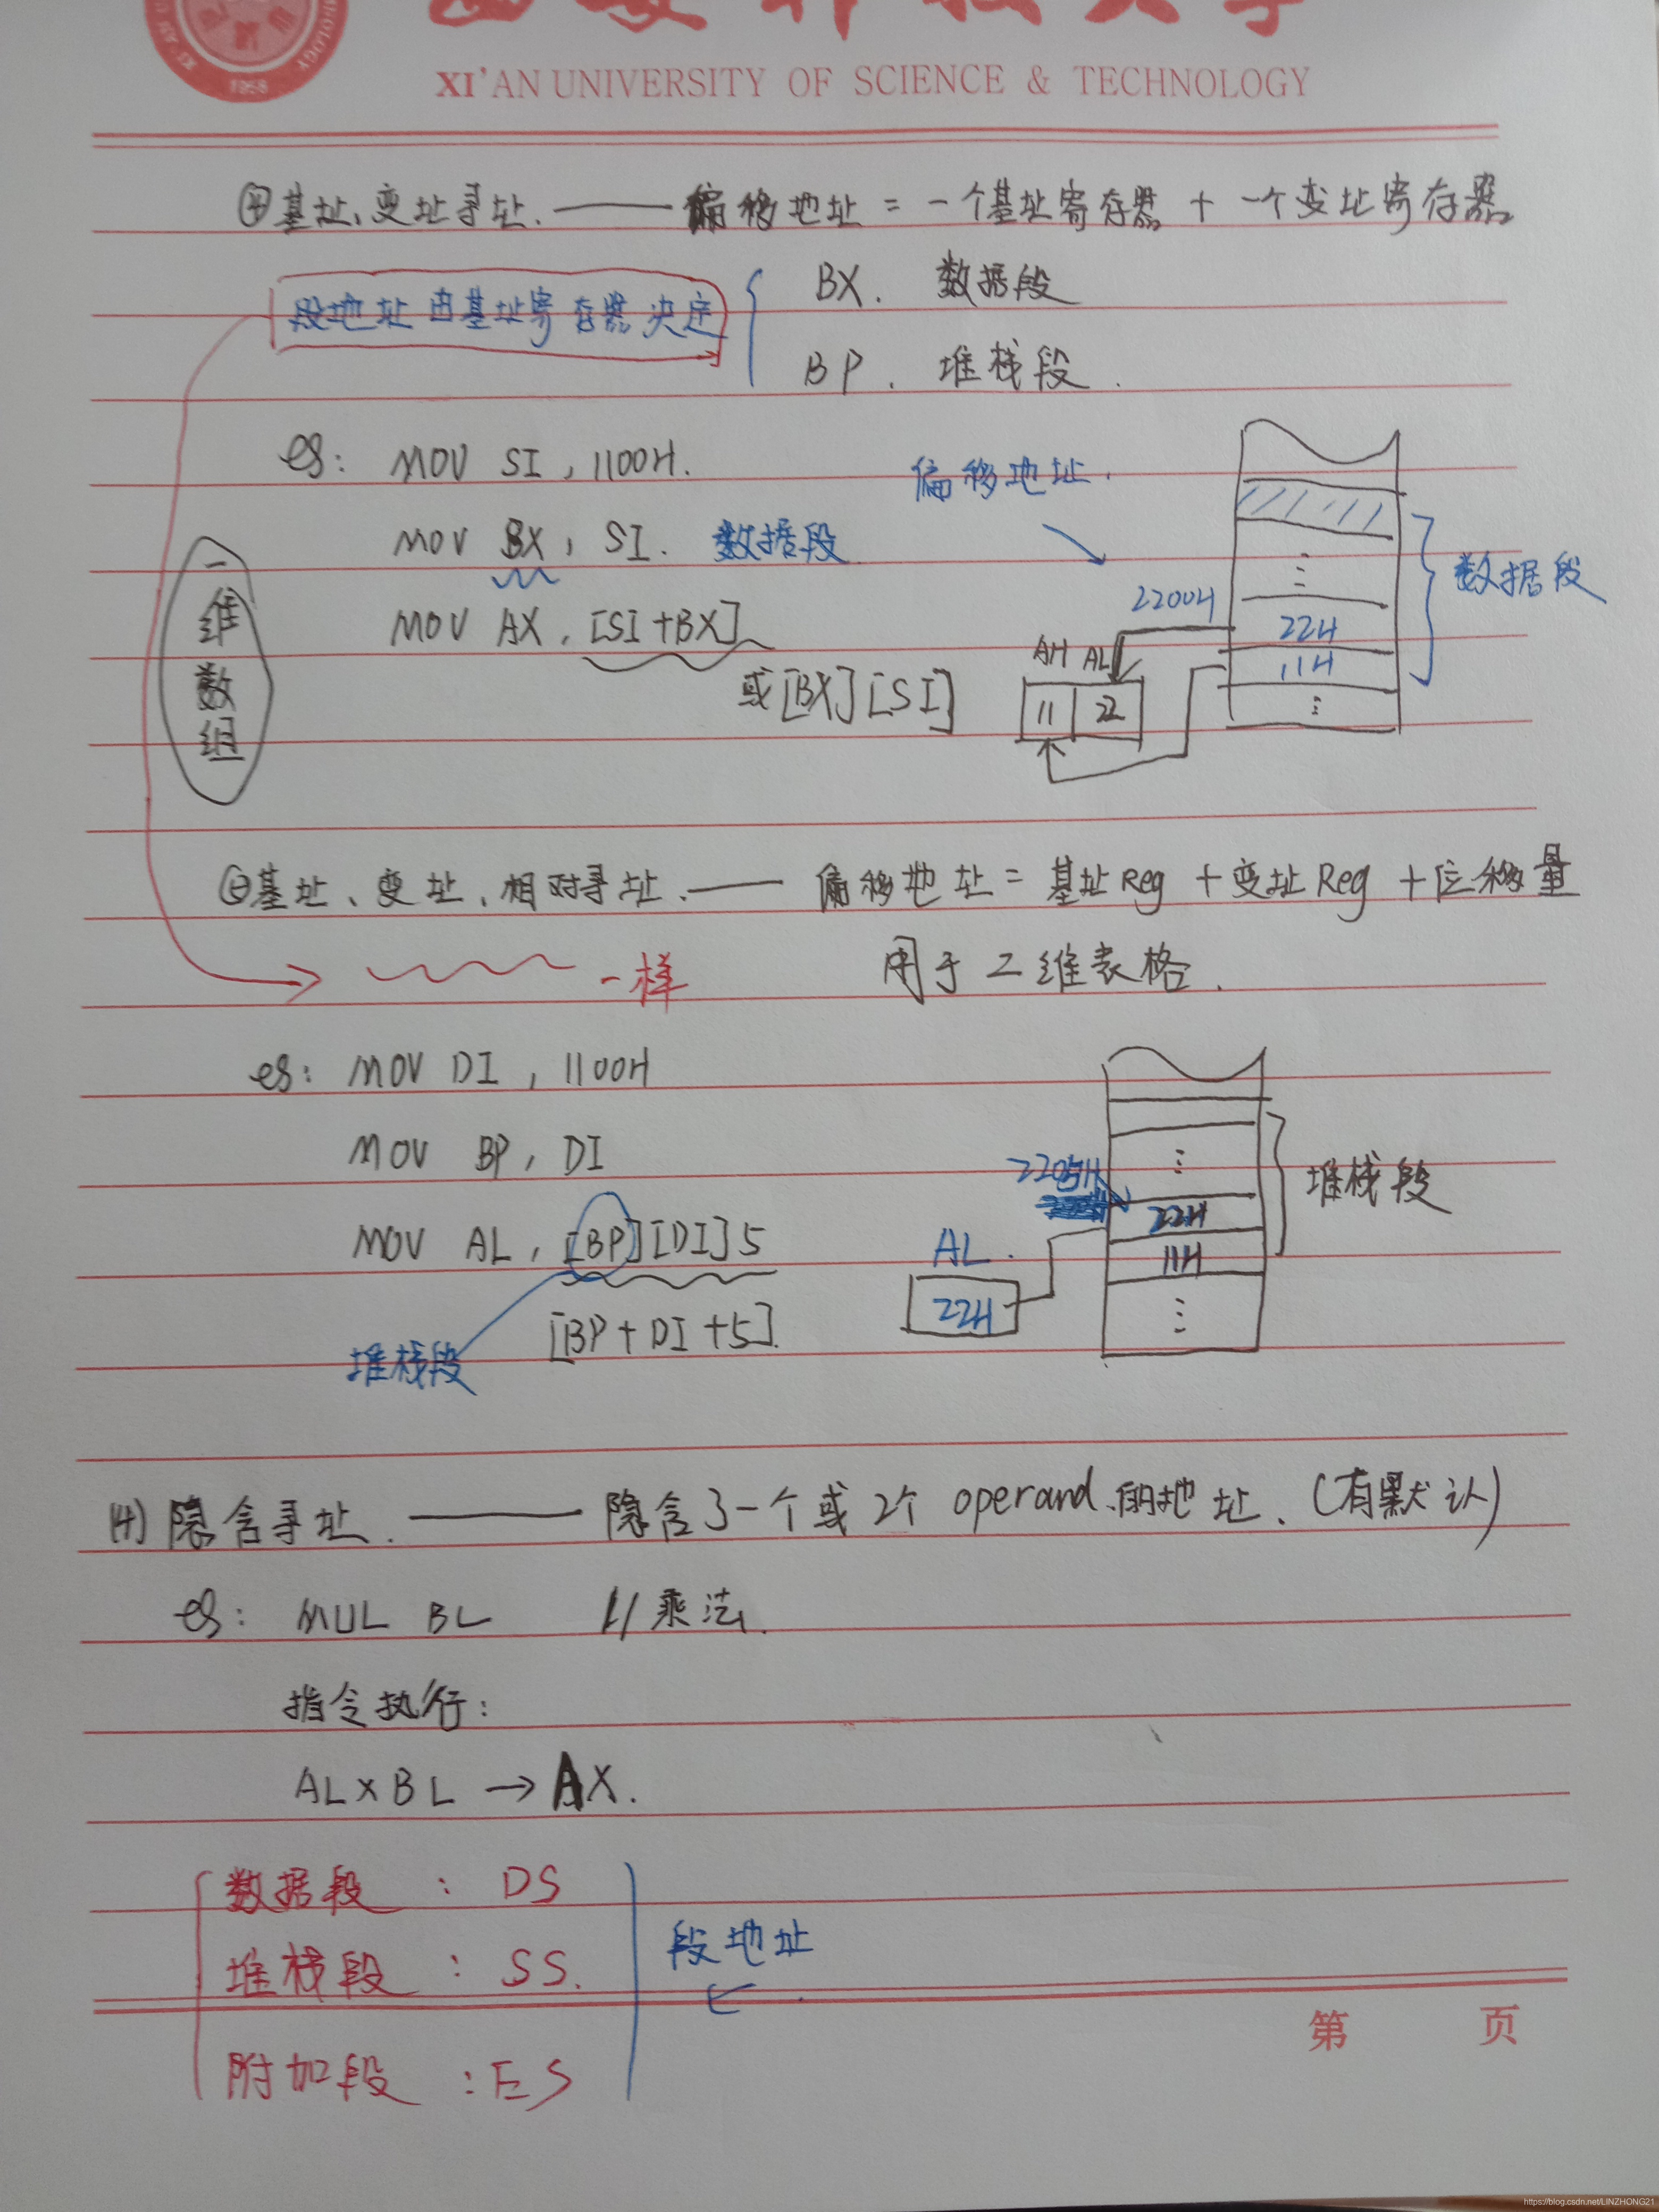 西安科技大学
XI'AN UNIVERSITY OF SCIENCE & TECHNOLOGY
1958
④基址、变址寻址. —— 偏移地址 = 一个基址寄存器 + 一个变址寄存器
段地址由基址寄存器决定
BX. 数据段
BP. 堆栈段.
eg: MOV SI, 1100H.
MOV BX, SI. 数据段
MOV AX, [SI+BX]
或[BX][SI]
一维数组
偏移地址.
2200H
AH AL
11 22
22H
11H
数据段
⑤基址、变址、相对寻址. —— 偏移地址 = 基址Reg + 变址Reg + 位移量
一样
用于二维表格.
eg: MOV DI, 1100H
MOV BP, DI
MOV AL, [BP][DI]5
[BP+DI+5]
堆栈段
2205H
AL.
22H
22H
11H
堆栈段
(4) 隐含寻址. —— 隐含了一个或2个operand的地址. (有默认)
eg: MUL BL //乘法.
指令执行:
AL×BL → AX.
数据段 : DS
堆栈段 : SS.
附加段 : ES
段地址
第 页
https://blog.csdn.net/LINZHONG21